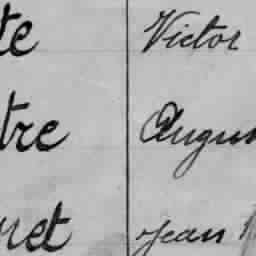 te Victor
tre Augus
ret Jean